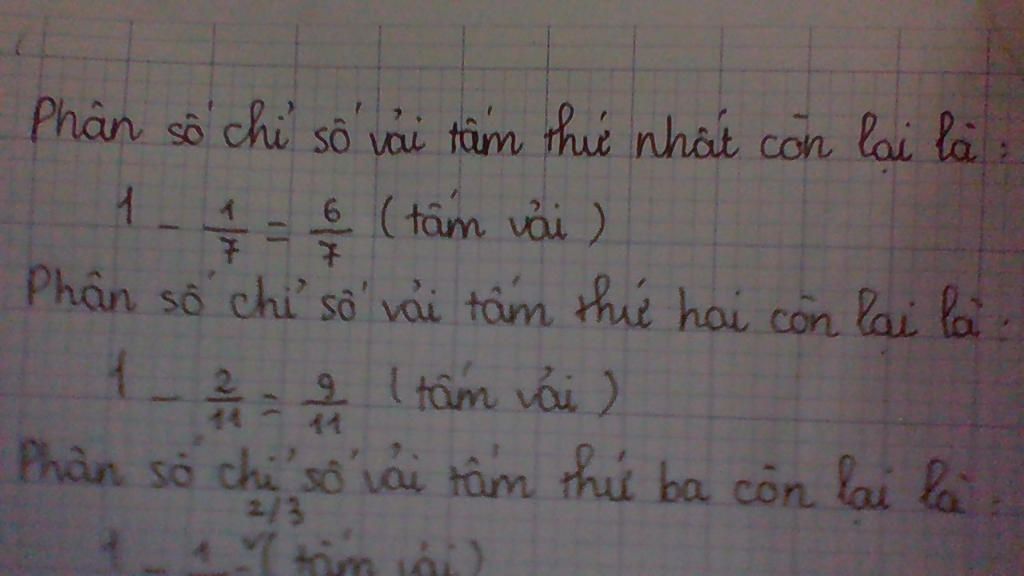 Phân số chỉ số vải tấm thứ nhất còn lại là :
1 - 1/7 = 6/7 ( tấm vải )
Phân số chỉ số vải tấm thứ hai còn lại là :
1 - 2/11 = 9/11 ( tấm vải )
Phân số chỉ số vải tấm thứ ba còn lại là :
2/3
1 - 1 ( tấm vải )